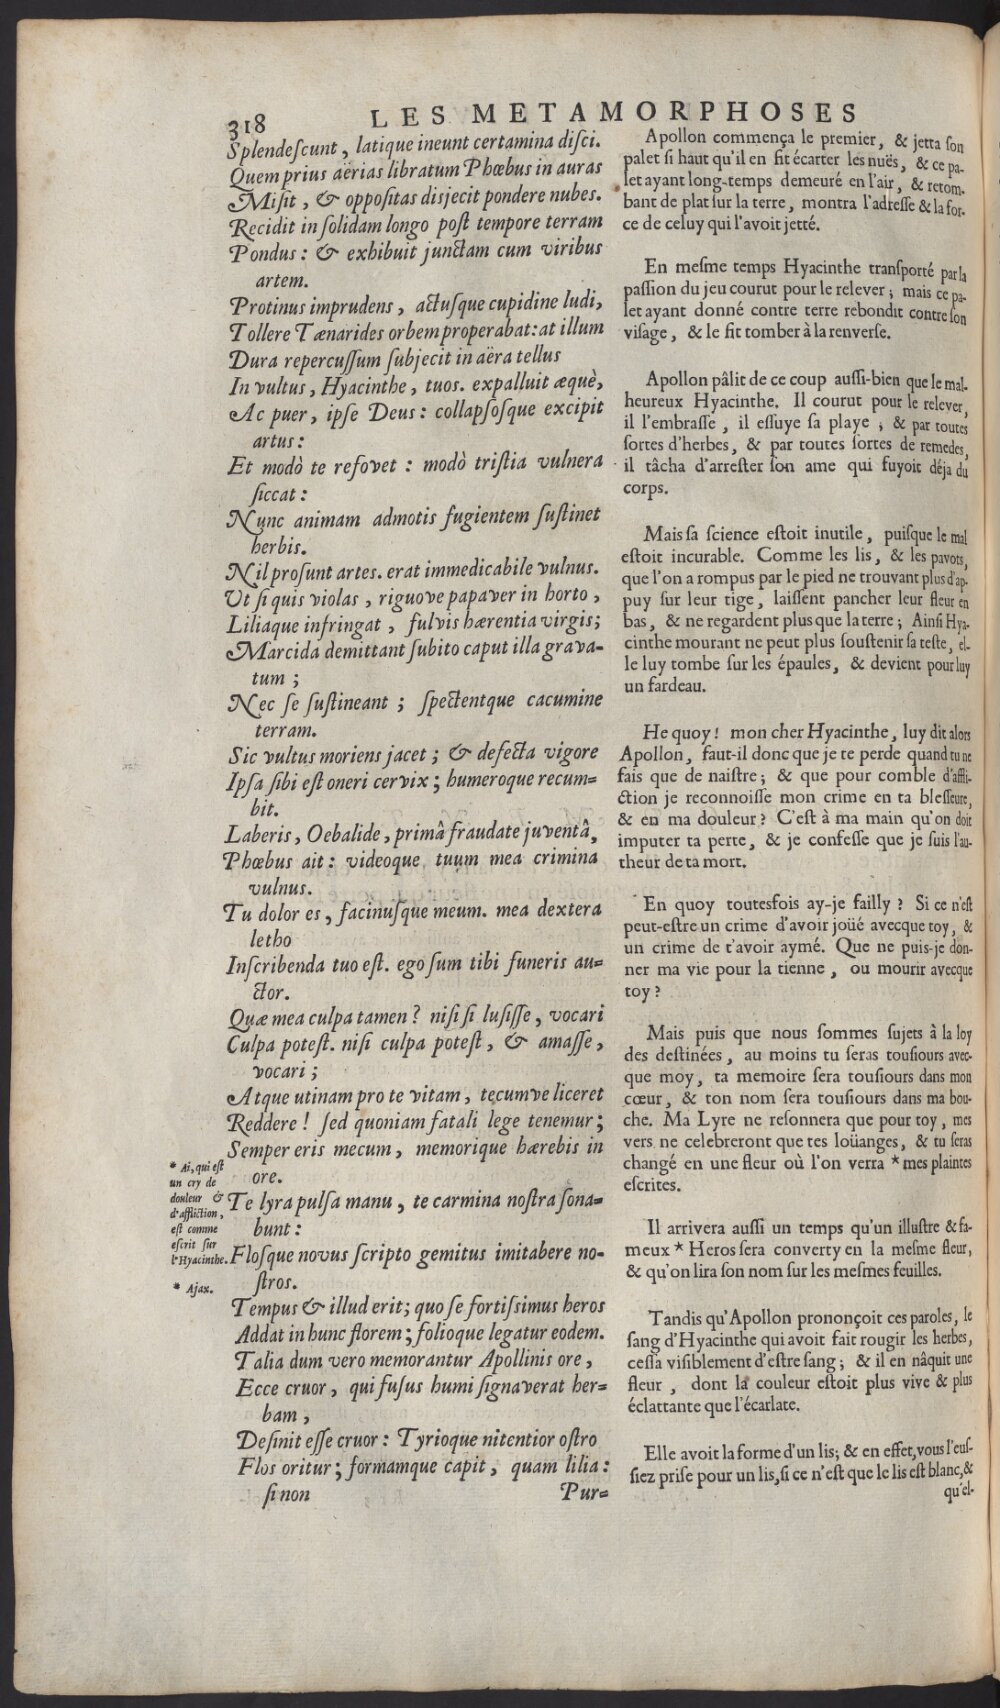 318
LES METAMORPHOSES
Splendeſcunt, latique ineunt certamina diſci.
Quem prius aërias libratum Phœbus in auras
Miſit, & oppoſitas disjecit pondere nubes.
Recidit in ſolidam longo poſt tempore terram
Pondus: & exhibuit junctam cum viribus
artem.
Protinus imprudens, actuſque cupidine ludi,
Tollere Tænarides orbem properabat: at illum
Dura repercuſſum ſubjecit in aëra tellus
In vultus, Hyacinthe, tuos. expalluit æquè,
Ac puer, ipſe Deus: collapſoſque excipit
artus:
Et modò te refovet: modò triſtia vulnera
ſiccat:
Nunc animam admotis fugientem ſuſtinet
herbis.
Nil proſunt artes. erat immedicabile vulnus.
Ut ſi quis violas, riguove papaver in horto,
Liliaque infringat, fulvis hærentia virgis;
Marcida demittant ſubito caput illa grava-
tum;
Nec ſe ſuſtineant; ſpectentque cacumine
terram.
Sic vultus moriens jacet; & defecta vigore
Ipſa ſibi eſt oneri cervix; humeroque recum-
bit.
Laberis, Oebalide, primâ fraudate juventâ,
Phœbus ait: videoque tuum mea crimina
vulnus.
Tu dolor es, facinuſque meum. mea dextera
letho
Inſcribenda tuo eſt. ego ſum tibi funeris au-
ctor.
Quæ mea culpa tamen? niſi ſi luſiſſe, vocari
Culpa poteſt. niſi culpa poteſt, & amaſſe,
vocari;
Atque utinam pro te vitam, tecumve liceret
Reddere! ſed quoniam fatali lege tenemur;
Semper eris mecum, memorique hærebis in
ore.
Te lyra pulſa manu, te carmina noſtra ſona-
bunt:
Floſque novus ſcripto gemitus imitabere no-
ſtros.
Tempus & illud erit; quo ſe fortiſsimus heros
Addat in hunc florem; folioque legatur eodem.
Talia dum vero memorantur Apollinis ore,
Ecce cruor, qui fuſus humi ſignaverat her-
bam,
Deſinit eſſe cruor: Tyrioque nitentior oſtro
Flos oritur; formamque capit, quam lilia:
ſi non
Pur-
* Ai, qui eſt
un cry de
douleur &
d'affliction,
eſt comme
eſcrit ſur
l'Hyacinthe.
* Ajax.
Apollon commença le premier, & jetta ſon
palet ſi haut qu'il en fit écarter les nuës, & ce pa-
let ayant long-temps demeuré en l'air, & retom-
bant de plat ſur la terre, montra l'adreſſe & la for-
ce de celuy qui l'avoit jetté.
En meſme temps Hyacinthe tranſporté par la
paſſion du jeu courut pour le relever; mais ce pa-
let ayant donné contre terre rebondit contre ſon
viſage, & le fit tomber à la renverſe.
Apollon pâlit de ce coup auſſi-bien que le mal-
heureux Hyacinthe. Il courut pour le relever,
il l'embraſſe, il eſſuye ſa playe; & par toutes
ſortes d'herbes, & par toutes ſortes de remedes,
il tâcha d'arreſter ſon ame qui fuyoit déja du
corps.
Mais ſa ſcience eſtoit inutile, puiſque le mal
eſtoit incurable. Comme les lis, & les pavots,
que l'on a rompus par le pied ne trouvant plus d'ap-
puy ſur leur tige, laiſſent pancher leur fleur en
bas, & ne regardent plus que la terre; Ainſi Hya-
cinthe mourant ne peut plus ſouſtenir ſa teſte, el-
le luy tombe ſur les épaules, & devient pour luy
un fardeau.
He quoy! mon cher Hyacinthe, luy dit alors
Apollon, faut-il donc que je te perde quand tu ne
fais que de naiſtre; & que pour comble d'affli-
ction je reconnoiſſe mon crime en ta bleſſeure,
& en ma douleur? C'eſt à ma main qu'on doit
imputer ta perte, & je confeſſe que je ſuis l'au-
theur de ta mort.
En quoy toutesfois ay-je failly? Si ce n'eſt
peut-eſtre un crime d'avoir joüé avecque toy, &
un crime de t'avoir aymé. Que ne puis-je don-
ner ma vie pour la tienne, ou mourir avecque
toy?
Mais puis que nous ſommes ſujets à la loy
des deſtinées, au moins tu ſeras touſiours avec-
que moy, ta memoire ſera touſiours dans mon
cœur, & ton nom ſera touſiours dans ma bou-
che. Ma Lyre ne reſonnera que pour toy, mes
vers ne celebreront que tes loüanges, & tu ſeras
changé en une fleur où l'on verra * mes plaintes
eſcrites.
Il arrivera auſſi un temps qu'un illuſtre & fa-
meux * Heros ſera converty en la meſme fleur,
& qu'on lira ſon nom ſur les meſmes feuilles.
Tandis qu'Apollon prononçoit ces paroles, le
ſang d'Hyacinthe qui avoit fait rougir les herbes,
ceſſa viſiblement d'eſtre ſang; & il en nâquit une
fleur, dont la couleur eſtoit plus vive & plus
éclattante que l'écarlate.
Elle avoit la forme d'un lis; & en effet, vous l'euſ-
ſiez priſe pour un lis, ſi ce n'eſt que le lis eſt blanc, &
qu'el-